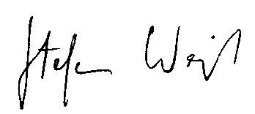 Stefan Weil